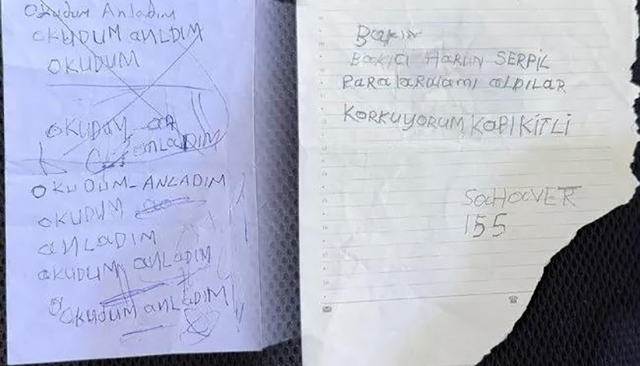 Okudum Anladım
OKUDUM aNLDIM
OKUDUM
OKUDUM
anLaDIM
OKUDUM-ANLADIM
OKUDUM
aNLaDIM
OKUDUM aNLaDIM
OKUDUM anLaDIM
Bakın
BAKICI HARUN SERPİL
PARalarıLamı alDILAR
KORKUYORUM KAPI KİTLİ
SaHaVER
155